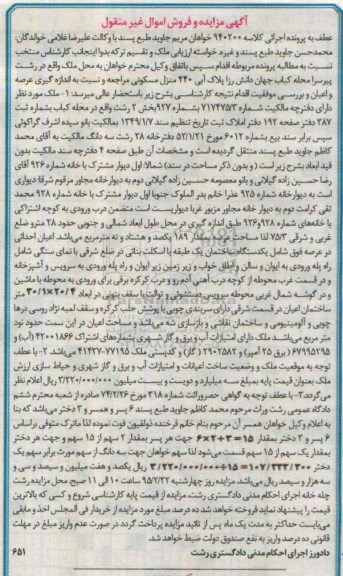 آگهی مزایده و فروش اموال غیر منقول
عطف به پرونده اجرائی کلاسه ۹۴۰۲۰۰ خواهان مریم جاوید طبع پسند با وکالت علیرضا غلامی خواندگان:
محمدحسن جاوید طبع پسند و غیره، خواسته ارزیابی ملک و تقسیم ترکه بدوا اینجانب کارشناس منتخب
نسبت به مطالعه پرونده مربوطه اقدام سپس باتفاق وکیل محترم خواهان به محل ملک واقع در رشت
پیرسرا محله کباب جهان دانش رزا پلاک آبی ۴۴۰ منزل مسکونی مراجعه و نسبت به اندازه گیری عرصه
و اعیان و بررسی موقعیت اقدام نتیجه کارشناسی بشرح زیر باستحضار عالی میرسد: ۱- ملک مورد نظر
دارای دفترچه مالکیت شماره ۷۱۷۴۷۵۳ بشماره ۹۲۷بخش ۲ رشت واقع در محله کباب بشماره ثبت
۳۸۷ دفتر صفحه ۱۹۲ دفتر املاک ثبت تاریخ تنظیم سند ۱۳۴۹/۱/۷ بمالکیت بانو سیده اشرف گراکوئی
سپس برابر سند بیع بشماره ۶۰۱۲ مورخ ۵۲/۱/۲۱ دفترخانه ۲۸ رشت سه دانگ مالکیت به آقای محمد
کاظم جاوید طبع پسند منتقل گردیده است و مشخصات آن طبق صفحه ۴ دفترچه سند مالکیت بدون
قید ابعاد بشرح زیر است ( و بدون ذکر مساحت در سند) شمالا اول دیوار مشترک با خانه شماره ۹۲۶ آقای
رضا حسین زاده گیلانی و بانو معصومه حسین زاده گیلانی دوم به دیوارخانه مجاور مرقوم شرقا: دیواری
است به دیوارخانه شماره ۹۲۵ عذرا خانم بدر الملوک جنوبا اول دیوار مشترک با خانه شماره ۹۲۸ محمد
تقی کرامت دوم به دیوار خانه مجاور مزبور غربا دیواریست است متضمن درب ورودی به کوچه اشتراکی
با خانه‌های شماره ۹۲۸و۹۲۶ طبق اندازه گیری در محل طول ابعاد شمالی و جنوبی حدود ۲۸ مترو ضلع
غربی و شرقی ۷۵/۳ لذا مساحت عرصه بمقدار ۱۸۹ یکصد و هشتاد و نه مترمربع می‌باشد اعیان احداثی
در عرصه فوق شامل یکدستگاه ساختمان یک طبقه با اسکلت بنائی در ضلع شرقی با نمای سنگی شامل
راه پله ورودی به ایوان و سالن و اطاق خواب و زیر زمین زیر ایوان و راه پله ورودی به سرویس و آشپزخانه
و در قسمت غرب محوطه از کوچه درب آهنی آدم رو و درب کرکره برقی برای ورودی به محوطه با ماشین
و در گوشه شمال غربی محوطه سرویس دستشوئی و توالت با سقف چوبی در ابعاد ۲۰/۴×۳۰/۱ متر
ساختمان اعیان در قسمت شرقی دارای سربندی چوبی با پوشش حلب کرکره و سقف لمبه نژاد روسی درها
چوبی و آلومینیومی و ساختمان نقاشی و بازسازی شه می‌باشد و مساحت اعیان در این سمت حدود نود
متر مربع می‌باشد. ملک دارای امتیازات آب و برق و گاز شهری بشماره‌های اشتراک ۴۲۰۰۱۸۶۶ (آب) و
۶۷۹۹۵۲۹۵ ( برق ۲۵ آمپر) و ۲۹۰۲۵۸۲ (گاز) و کدپستی ملک ۷۷۱۹۵-۴۱۴۳۷ می‌باشد. ۲- با عطف
توجه به موقعیت ملک و وضعیت ساخت اعیانات و امتیازات آب و برق و گاز شهری و حیاط سازی ارزش
ملک بعنوان قیمت پایه بمبلغ سه میلیارد و دویست و بیست میلیون ۳/۲۲۰/۰۰۰/۰۰۰ ریال اعلام نظر
می‌گردد.۳- با عطف توجه به گواهی حصروراثت شماره ۳۱۸ مورخ ۷۴/۲/۲۶ صادره از شعبه محترم ششم
دادگاه عمومی رشت وراث مرحوم محمد کاظم جاوید طبع پسند ۶ پسر و همسر و ۳ دختر می‌باشد که بنا
به اعلام وکیل خواهان همسر آن مرحوم بنام خانم فرخنده ذولقیون فوت نموده لذا ماترک متوفی براساس
۶ پسر و ۳ دختر بمقدار ۱۵=۳+۲×۶ جهت هر پسر بمقدار ۲ سهم از ۱۵ سهم و جهت هر دختر
بمقدار یک سهم از ۱۵ سهم قسمت می‌شود لذا سهم خواهان جهت سه دانگ از سهم مورث برابر سهم یک
دختر ۱۰۷/۳۳۳/۳۰۰=۱۵÷۳/۲۲۰/۰۰۰/۰۰۰ ریال یکصد و هفت میلیون و سیصد و سی و
سه هزار و سیصد ریال می‌باشد. مزایده روز چهارشنبه ۹۵/۲/۲۲ ساعت ۱۰ الی ۱۱ صبح. محل مزایده رشت
چله خانه اجرای احکام مدنی دادگستری رشت. مزایده از قیمت پایه کارشناسی شروع و کسی که بالاترین
قیمت را پیشنهاد نماید فروخته خواهد شد ده درصد مبلغ مورد مزایده از خریدار فی المجلس اخذ و مابقی
می‌بایست حداکثر به مدت یک ماه پس از تائید مزایده پرداخت گردد در صورت عدم واریز مبلغ در مهلت
قانونی ده درصد واریز به نفع صندوق دولت ضبط خواهد شد.
دادورز اجرای احکام مدنی دادگستری رشت ۶۵۱